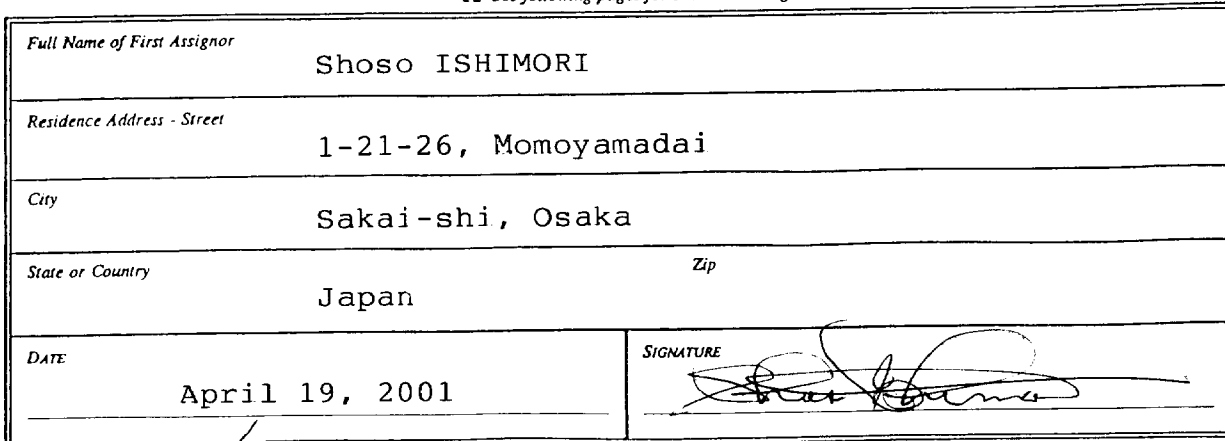 Full Name of First Assignor
Shoso ISHIMORI
Residence Address - Street
1-21-26, Momoyamadai
City
Sakai-shi, Osaka
State or Country
Zip
Japan
DATE
SIGNATURE
April 19, 2001